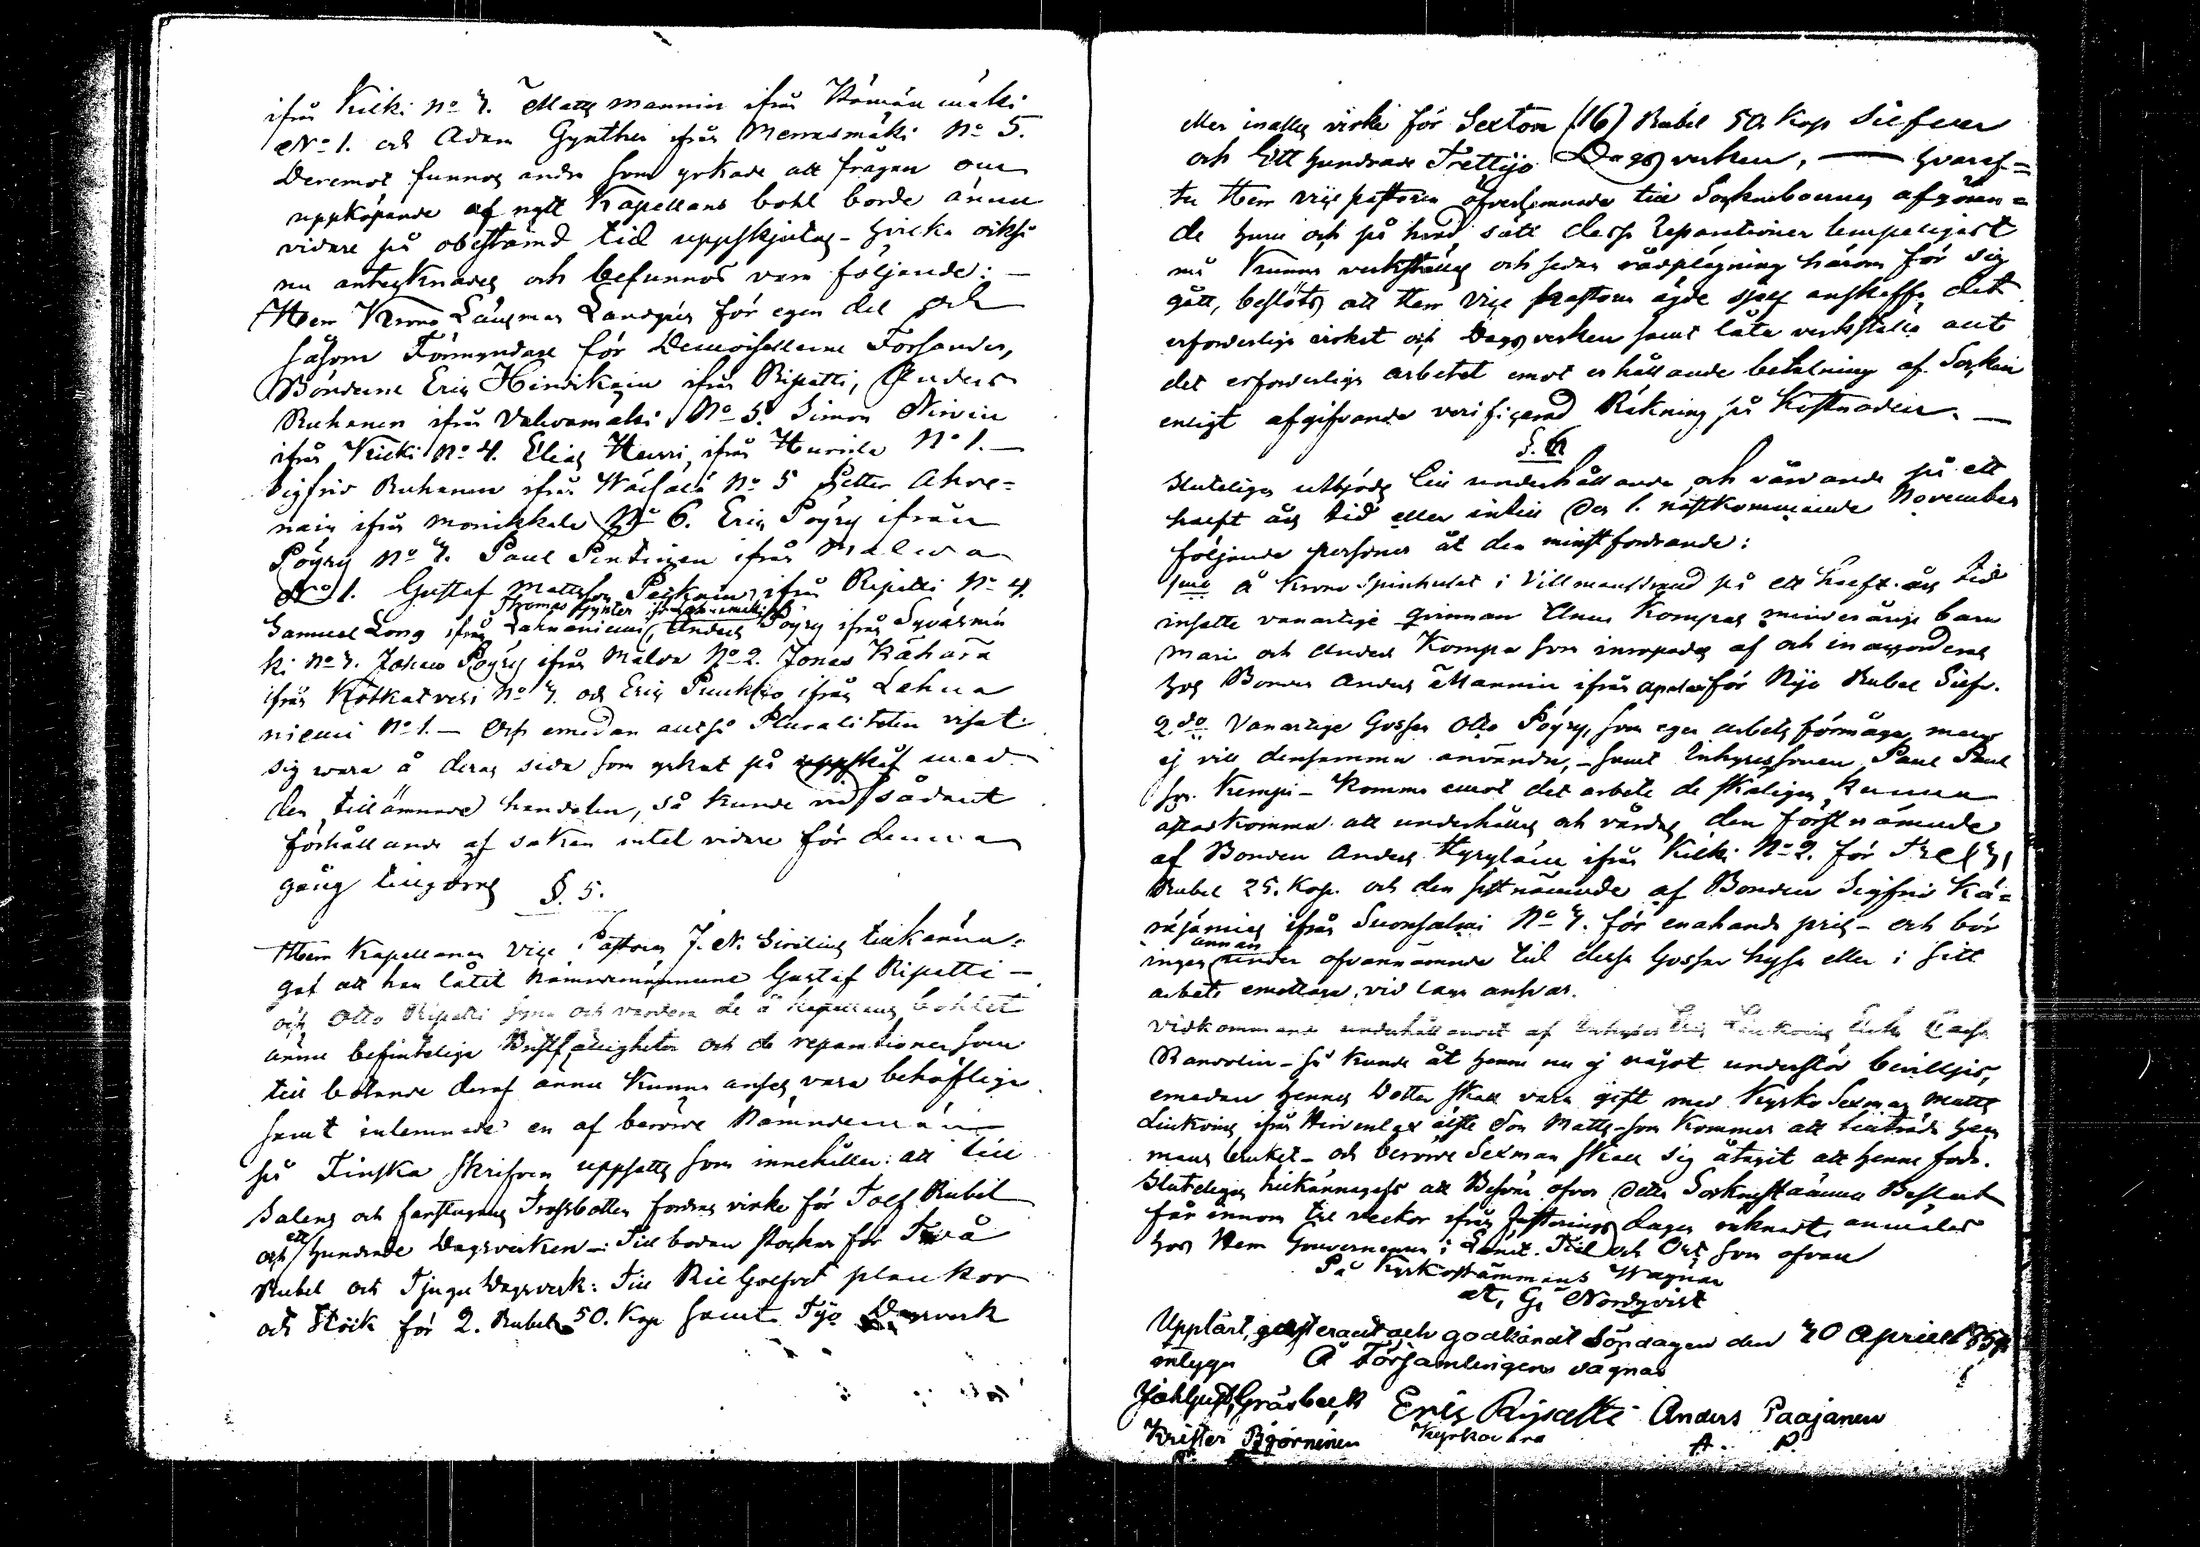 ifrån Kilki No 7. Matts Mannin ifrån Hömän mäki
No 1. och Adam Gynther ifrån Merrasmäki No 5.
Deremot funnos andra som yrkade att frågan om
uppköpande af nytt Kapellans bohl borde ännu
vidare på obestämd tid uppskjutas - hvilka också
nu antecknades och befunnos vara följande: -
Herr Krono Länsman Landgrén för egen del och
såsom Förmyndare för Demoisellerne Forsander,
Bönderne Eric Hindikain ifrån Ripatti, Anders
Ruhanen ifrån Vahvamäki No 5. Simon Nirvin
ifrån Kilki No 4. Elias Hurri, ifrån Hurrila No 1. -
Sigfrid Ruhanen ifrån No 5 Petter Ahve-
nain ifrån Monikkala No 6. Eric Pöyry ifrån
Pöyry No 7. Paul Pentinen ifrån Malva
No 1. Gustaf Mattsson ifrån Ripatti No 4.
Thomas Gynter
Samuel Long ifrån Lahnaniemi, Anders Pöyry ifrån Syväsmä
ki No 7. Johan Pöyry ifrån Malva No 2. Jonas Kähärä
ifrån Kotkatvesi No 7. och Eric Puukko ifrån Lahna
niemi No 1. - Och emedan altså Pluraliteten visat
sig wara å deras sida som yrkat på uppskof med
den tillämnade handelen, så kunde vid sådant
förhållande af saken intet vidare för denna
gång tillgöras
§. 5.
Herr Kapellanen Vice Pastoren J. N. Sirelius tillkänna-
gaf att han låtit Nämndemännerne Gustaf Ripatti -
och Otto Ripatti syna och värdera de å Kapellans bohlet
ännu befinteliga Bristfälligheter och de reparationer som
till botande deraf ännu kunna anses vara behöfliga
samt inlemnade en af berörde Nämndemän
på Finska skrifven uppsatts som innehåller: att till
Salens och farstugans Trossbotten fordras virke för Tolf Rubel
och ett hundrade Dagsverken - Till bodan stockar för Två
Rubel och Tjugu Dagsverk: Till Rie Golfvet plankor
och Stock för 2. Rubel 50. Kop samt Tijo Dagsverk
eller inalles virke för Sexton (16) Rubel 50. Kop Silfver
och Ett hundrade Trettijo Dagsverken, - hvaref-
ter Herr Vice pastoren öfverlemnade till Sockneboernas afgöran-
de huru och på hvad sätt dessa Reparationer lempeligast
må kunna verkställas och sedan rådplägning härom för sig
gått, beslöts att Herr Vice Pastoren ägde sjelf anskaffa det
erforderliga virket och Dagsverken samt låta verkställa allt
det erforderliga arbetet emot erhållande betalning af Socknen
enligt afgifvande verificerad Räkning på Kostnaden. -
§. 6.
Sluteligen utbjöds till underhållande och vårdande på ett
halft års tid eller intill den 1. nästkommande November
följande personer åt den minstfordrande:
1mo å Krono Spinhuset i Villmanstrand på ett halft års tid
insatte vanartige qvinnan Anna Kompas minderåriga barn
Mari och Anders Kompa som inropades af och inaccorderas
hos Bonden Anders Mannin ifrån för Nijo Rubel Silfv.
2.do Vanartige Gossen Otto Pöyry, som eger arbets förmåga, men
ej vill densamma använda, - samt Inhysessonen Paul Paul
son Kempi - komma emot det arbete de skäligen kunna
åstadkomma att underhållas och vårdas den förstnämnde
af Bonden Anders Hyryläin ifrån Kilki No 2. för Tre
Rubel 25. Kop. och den sistnämnde af Bonden Sigfrid Kä-
räjämies ifrån Suonsalmi No 7. för enahanda pris - och bör
annan
ingen under ofvannämnde tid dessa Gossar hysa eller i sitt
arbete emottaga, vid laga ansvar.
Vidkommande underhållandet af Enka
Randolin - så kunde åt henne nu ej något understöd beviljas,
emedan hennes Dotter skall vara gift med Kyrko Sexman Matts
Liukoins ifrån Hirvenlax äldste Son Matts - som kommer att tillträda hem
mans bruket - och berörde Sexman skall sig åtagit att henne föda.
Sluteligen tillkännagafs att Besvär öfver detta Sockenstämmo Beslut
får innom tre veckor ifrån justerings dagen räknadt anmälas
hos Herr Gouverneuren i Länet. Tid och Ort som ofvan
På Kyrkostämmans Wägnar
A. G. Nordqvist
Uppläst, justeradt och godkändt Söndagen den 20 April 1857
intyga På Församlingens vägnar
Joh Gust Gråsbeck Eric Ripatti Anders Paajanen
Krister Björninen Kyrkovärd A. P.